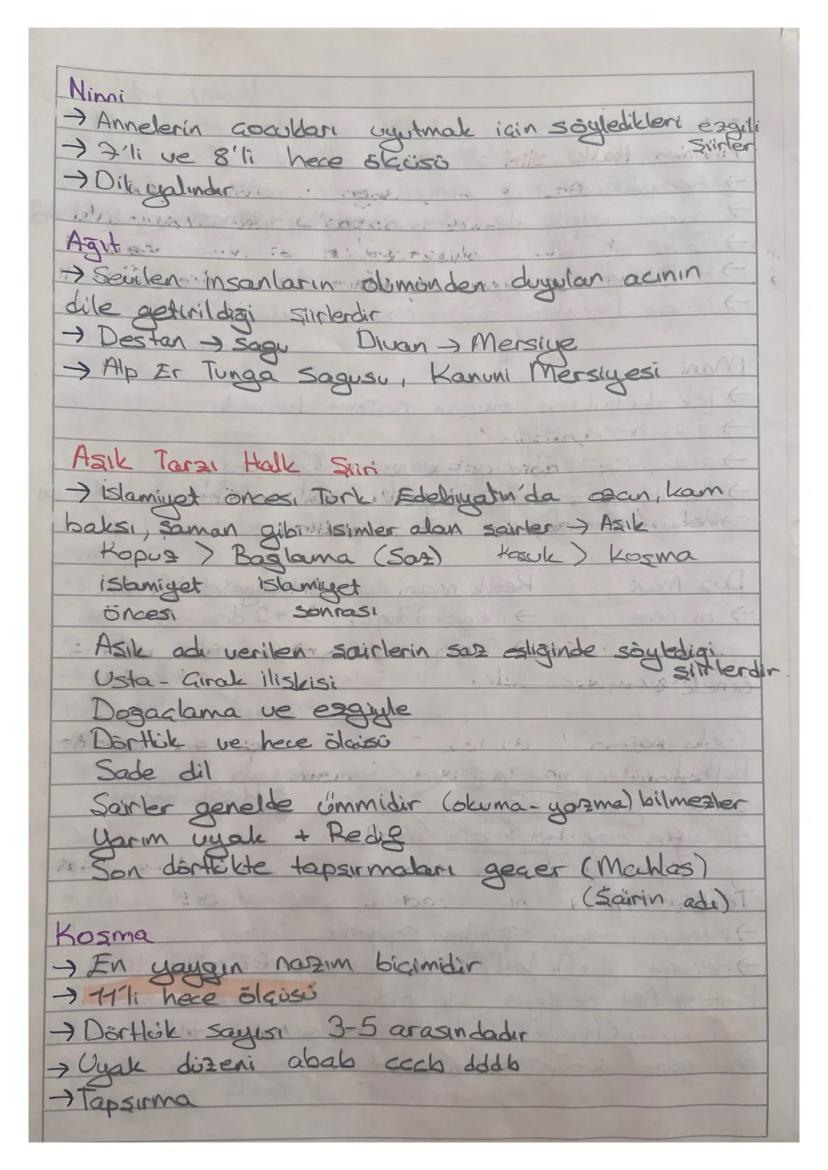 Ninni
→ Annelerin çocukları uyutmak için söyledikleri ezgili
şiirler
→ 7'li ve 8'li hece ölçüsü
→ Dil yalındır
Ağıt
→ Sevilen insanların ölümünden duyulan acının
dile getirildiği şiirlerdir
→ Destan → sagu Divan → Mersiye
→ Alp Er Tunga Sagusu, Kanuni Mersiyesi
Aşık Tarzı Halk Şiiri
→ islamiyet öncesi Türk Edebiyatın'da ozan, kam
baksı, şaman gibi isimler alan şairler → Aşık
Kopuz > Bağlama (Saz) Koşuk > koşma
islamiyet islamiyet
öncesi sonrası
Aşık adı verilen şairlerin saz eşliğinde söylediği
şiirlerdir
Usta - Çırak ilişkisi
Doğaçlama ve ezgiyle
Dörtlük ve hece ölçüsü
Sade dil
Şairler genelde ümmidir (okuma-yazma) bilmezler
Yarım uyak + Redif
Son dörtlükte tapşırmaları geçer (Mahlas)
(Şairin adı)
Koşma
→ En yaygın nazım biçimidir
→ 11'li hece ölçüsü
→ Dörtlük sayısı 3-5 arasındadır
→ Uyak düzeni abab cccb dddb
→ Tapşırma